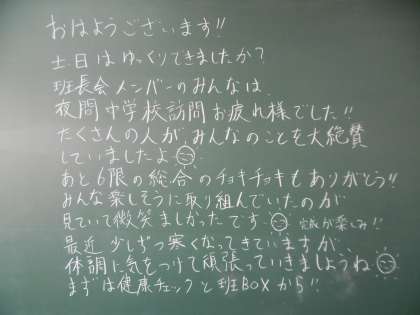 おはようございます!!
土日はゆっくりできましたか?
班長会メンバーのみんなは、
夜間中学校訪問お疲れ様でした!!
たくさんの人が、みんなのことを大絶賛
していましたよ
あと6限の総合のチョキチョキもありがとう!!
みんな楽しそうに取り組んでいたのが
見ていて微笑ましかったです。 完成が楽しみ!!
最近、少しずつ寒くなってきていますが、
体調に気をつけて頑張っていきましょうね
まずは健康チェックと班BOXから!!